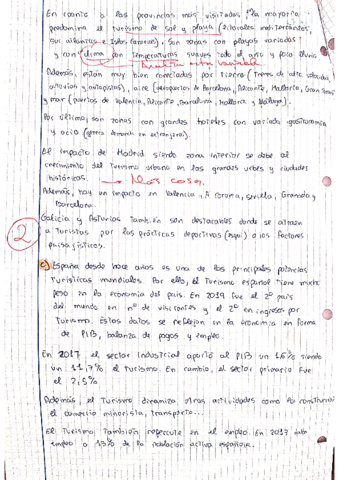 En cuanto a las provincias más visitadas, la mayoría
predomina el turismo de sol y playa (litorales mediterráneos,
sur atlántico e islas). Son zonas con playas variadas
y con clima con temperaturas suaves todo el año y poca lluvia
Además, están muy bien conectados por tierra (trenes de alta velocidad,
autovías y autopistas), aire (aeropuertos de Barcelona, Alicante, Mallorca,
y mar (puertos de Valencia, Alicante, Barcelona, Mallorca y Málaga).
Por último, son zonas con grandes hoteles con variada gastronomía
y ocio (genera demanda en extranjeros).
El impacto de Madrid siendo zona interior se debe al
crecimiento del turismo urbano en las grandes urbes y ciudades
históricas. → Más cosas.
Además, hay un impacto en Valencia, A Coruña, Sevilla, Granada y
Barcelona.
Galicia y Asturias también son destacables donde se atraen
2
a turistas por las prácticas deportivas (esquí) o los factores
paisajísticos.
c) España desde hace años es una de las principales potencias
turísticas mundiales. Por ello, el turismo español tiene mucho
peso en la economía del país. En 2019 fue el 2º país
del mundo en nº de visitantes y el 2º en ingresos por
turismo. Estos datos se reflejan en la economía en forma
de PIB, balanza de pagos y empleo.
En 2017, el sector industrial aportó al PIB un 16% siendo
un 11,7% el turismo. En cambio, el sector primario fue
el 2,5%
Además, el turismo dinamiza otras actividades como la construcción
el comercio minorista, transporte...
El turismo también repercute en el empleo. En 2017 daba
empleo a 13% de la población activa española.